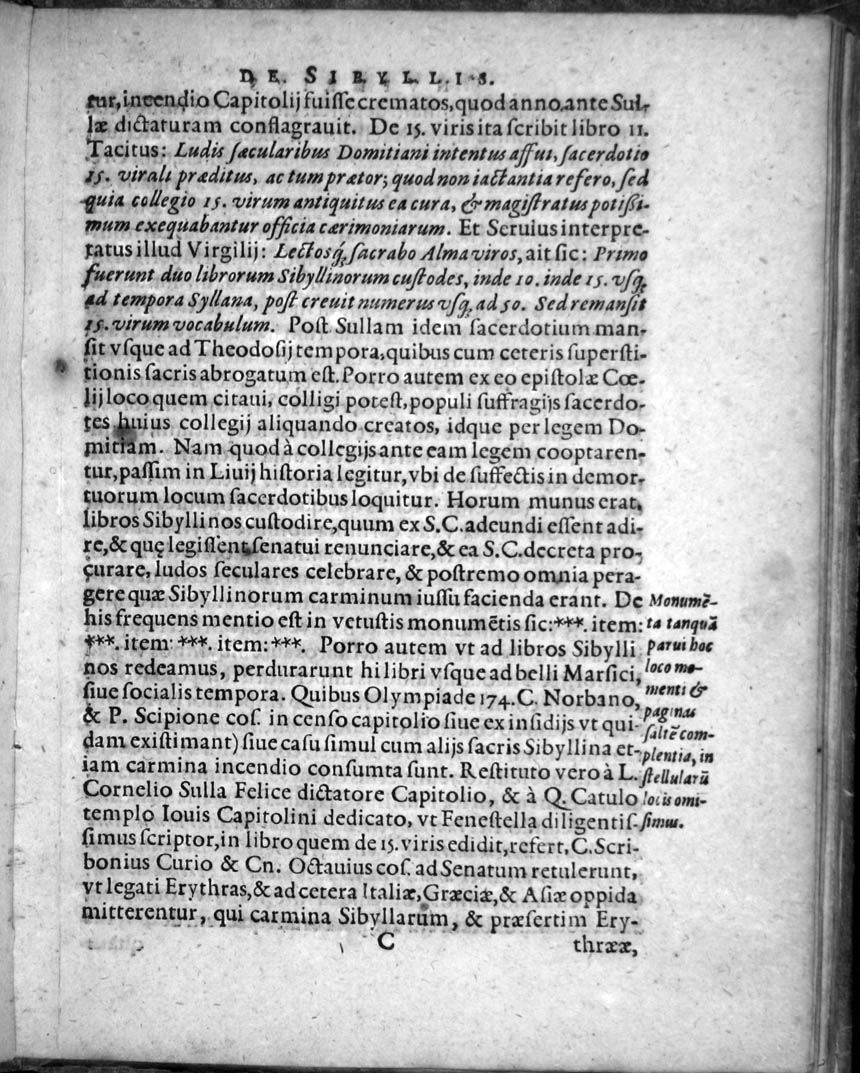 DE SIBYLLIS.
tur, incendio Capitolij fuiſſe crematos, quod anno ante Sul-
læ dictaturam conflagrauit. De 15. viris ita ſcribit libro 11.
Tacitus: Ludis ſæcularibus Domitiani intentus affui, ſacerdotio
15. virali præditus, ac tum prætor; quod non iactantia refero, ſed
quia collegio 15. virum antiquitus ea cura, & magiſtratus potißi-
mum exequabantur officia cærimoniarum. Et Seruius interpre-
tatus illud Virgilij: Lectosq́; ſacrabo Alma viros, ait ſic: Primo
fuerunt duo librorum Sibyllinorum cuſtodes, inde 10. inde 15. vſq;
ad tempora Syllana, poſt creuit numerus vſq; ad 50. Sed remanſit
15. virum vocabulum. Poſt Sullam idem ſacerdotium man-
ſit vſque ad Theodoſij tempora, quibus cum ceteris ſuperſti-
tionis ſacris abrogatum eſt. Porro autem ex eo epiſtolæ Cœ-
lij loco quem citaui, colligi poteſt, populi ſuffragijs ſacerdo-
tes huius collegij aliquando creatos, idque per legem Do-
mitiam. Nam quod à collegijs ante eam legem cooptaren-
tur, paſſim in Liuij hiſtoria legitur, vbi de ſuffectis in demor-
tuorum locum ſacerdotibus loquitur. Horum munus erat,
libros Sibyllinos cuſtodire, quum ex S.C. adeundi eſſent adi-
re, & quę legiſſent ſenatui renunciare, & ea S.C. decreta pro-
curare, ludos ſeculares celebrare, & poſtremo omnia pera-
gere quæ Sibyllinorum carminum iuſſu facienda erant. De
his frequens mentio eſt in vetuſtis monumētis ſic: ***. item:
***. item: ***. item: ***. Porro autem vt ad libros Sibylli
nos redeamus, perdurarunt hi libri vſque ad belli Marſici,
ſiue ſocialis tempora. Quibus Olympiade 174. C. Norbano,
& P. Scipione coſ. incenſo capitolio ſiue ex inſidijs vt qui-
dam exiſtimant) ſiue caſu ſimul cum alijs ſacris Sibyllina et-
iam carmina incendio conſumta ſunt. Reſtituto vero à L.
Cornelio Sulla Felice dictatore Capitolio, & à Q. Catulo
templo Iouis Capitolini dedicato, vt Feneſtella diligentiſ-
ſimus ſcriptor, in libro quem de 15. viris edidit, refert, C. Scri-
bonius Curio & Cn. Octauius coſ. ad Senatum retulerunt,
vt legati Erythras, & ad cetera Italiæ, Græciæ, & Aſiæ oppida
mitterentur, qui carmina Sibyllarum, & præſertim Ery-
C thrææ,
Monumē-
ta tanquā
parui hoc
loco mo-
menti &
paginas
ſaltē com-
plentia, in
ſtellularū
locis omi-
ſimus.